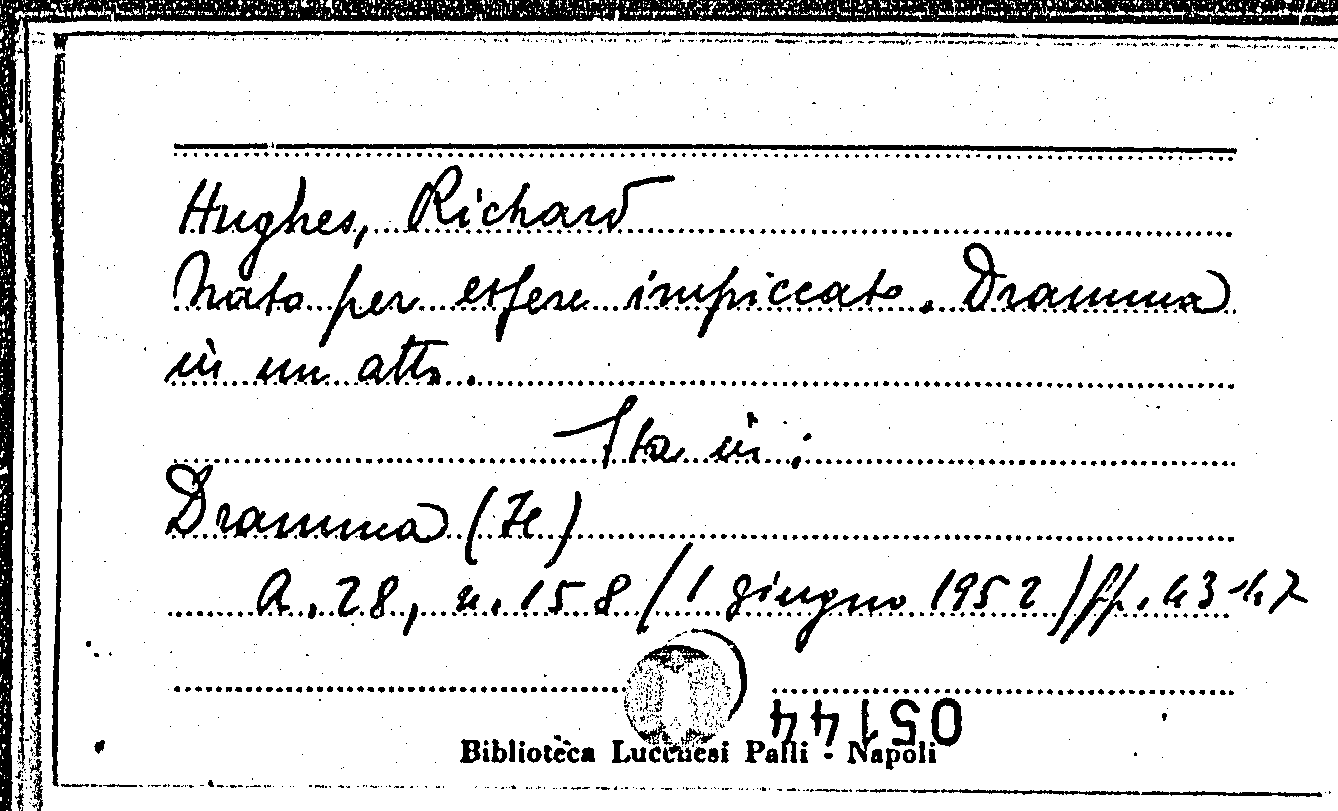 Hughes, Richard
Nato per essere impiccato. Dramma
in un atto.
Sta in:
Dramma (Il)
A. 28, n. 158 (1 giugno 1952) pp. 43-47
05144
Biblioteca Lucchesi Palli - Napoli